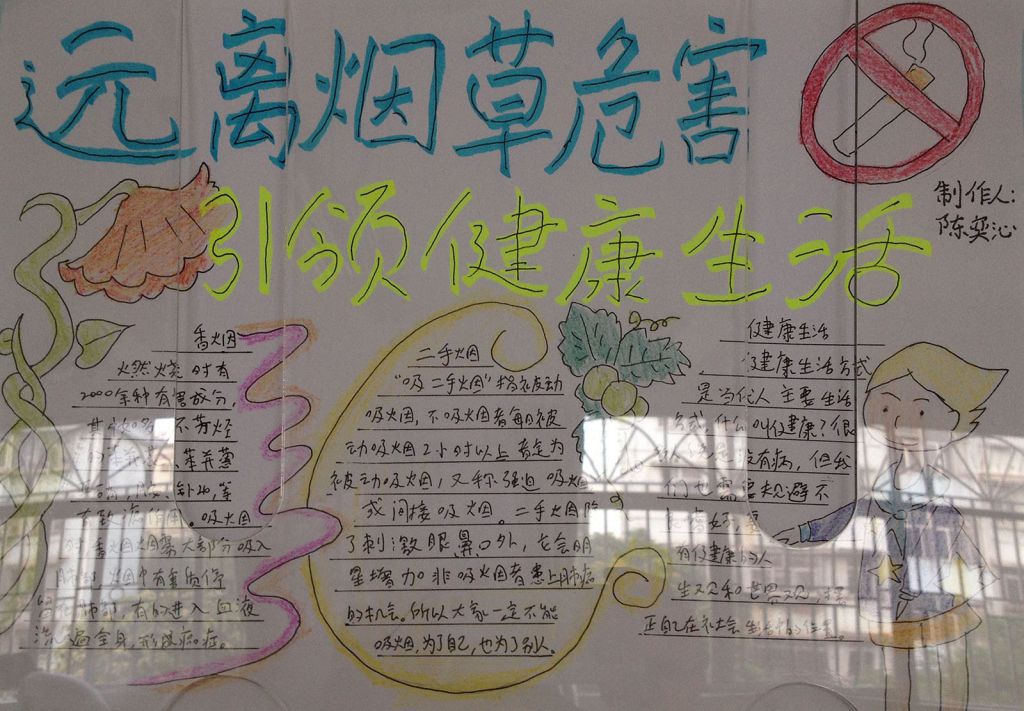 远离烟草危害
引领健康生活
制作人:
陈奕沁
香烟
火然烧时有
2000余种有害成分,
不芳烃
苯并蒽
等
吸火因
时香烟烟雾大部分吸入
肺部,烟中有害物停
留在肺部,有的进入血液
流心遍全身,形成癌症。
二手烟
"吸二手烟"指被动
吸烟,不吸烟者每日被
动吸烟2小时以上者定为
被动吸烟,又称强迫吸烟
或间接吸烟。二手烟除
了刺激眼鼻口外,它会明
星增加非吸烟者患上肺癌
的机会。所以大家一定不能
吸烟,为了自己,也为了别人。
健康生活
健康生活方式
是当代人主要生活
方式,什么叫健康?很
没有病,但我
们也需要规避不
有健康的人
生观和世界观,摆
正自己在社会生活中的位置。